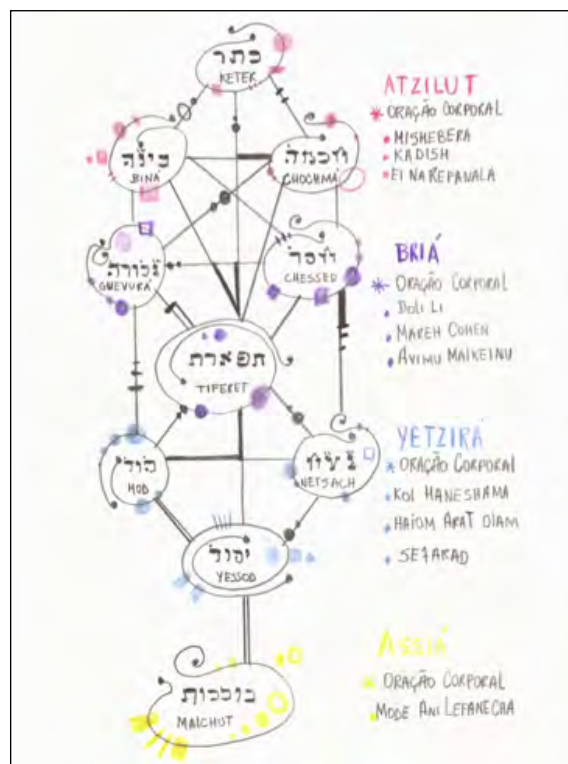 כתר
KETER
בינה
BINÁ
חכמה
CHOCHMÁ
גבורה
GUEVURÁ
חסד
CHESSED
תפארת
TIFERET
הוד
HOD
נצח
NETSACH
יסוד
YESSOD
מלכות
MALCHUT
ATZILUT
ORAÇÃO CORPORAL
MISHEBERA
KADISH
EI NAREPANALA
BRIÁ
ORAÇÃO CORPORAL
DOLI LI
MAREH COHEN
AVINU MALKEINU
YETZIRÁ
ORAÇÃO CORPORAL
KOL HANESHAMA
HAIOM ARAT OLAM
SEFARAD
ASSIÁ
ORAÇÃO CORPORAL
MODE ANI LEFANECHA